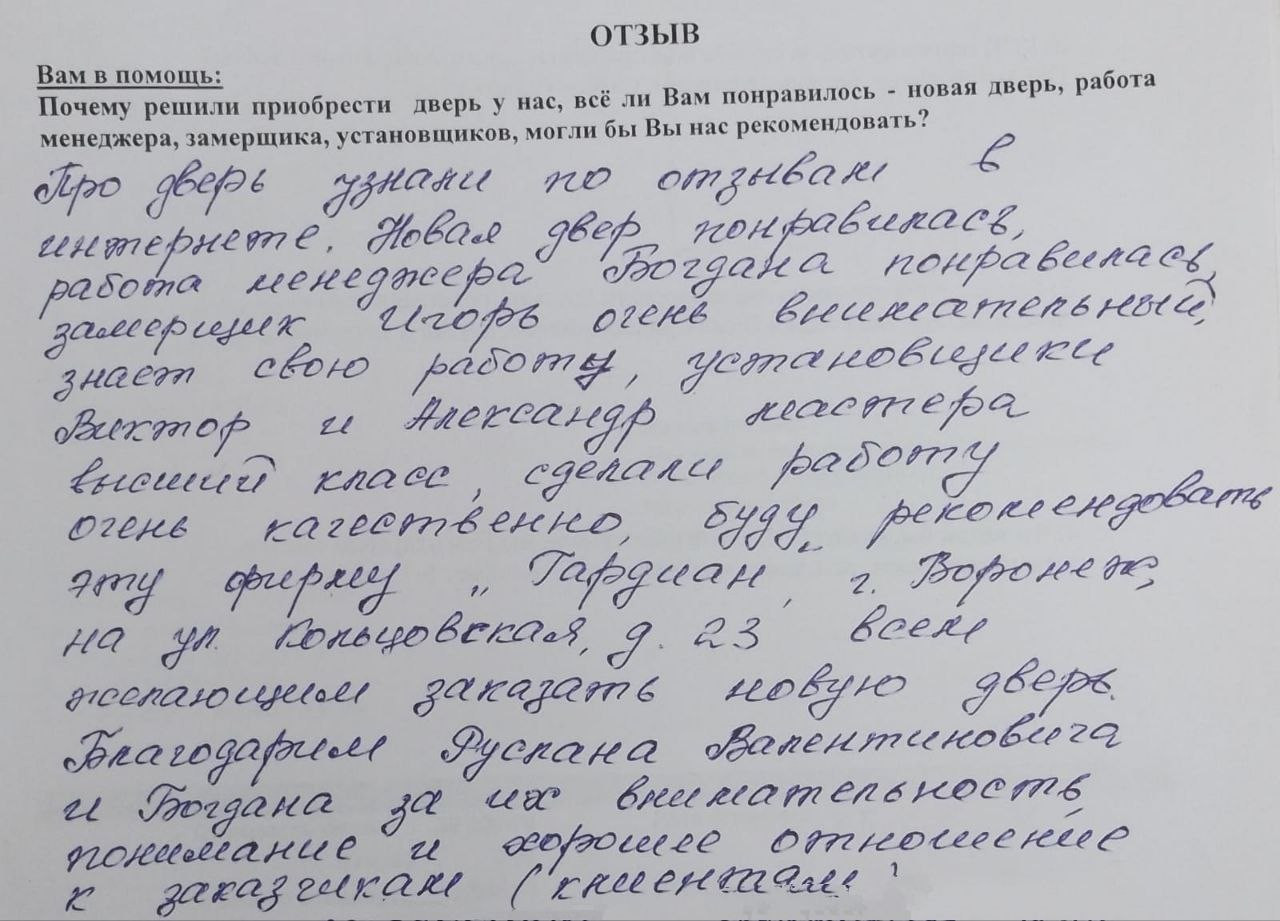 ОТЗЫВ
Вам в помощь:
Почему решили приобрести дверь у нас, всё ли Вам понравилось - новая дверь, работа
менеджера, замерщика, установщиков, могли бы Вы нас рекомендовать?
Про дверь узнали по отзывам в
интернете. Новая двер понравилась,
работа менеджера Богдана понравилась,
замерщик Игорь очень внимательный,
знает свою работу, установщики
Виктор и Александр мастера
высший класс, сделали работу
очень качественно, буду рекомендовать
эту фирму „Гардиан“, г. Воронеж,
на ул. Кольцовская, д. 23 всем
желающим заказать новую дверь.
Благодарим Руслана Валентиновича
и Богдана за их внимательность,
понимание и хорошее отношение
к заказчикам (клиентам)